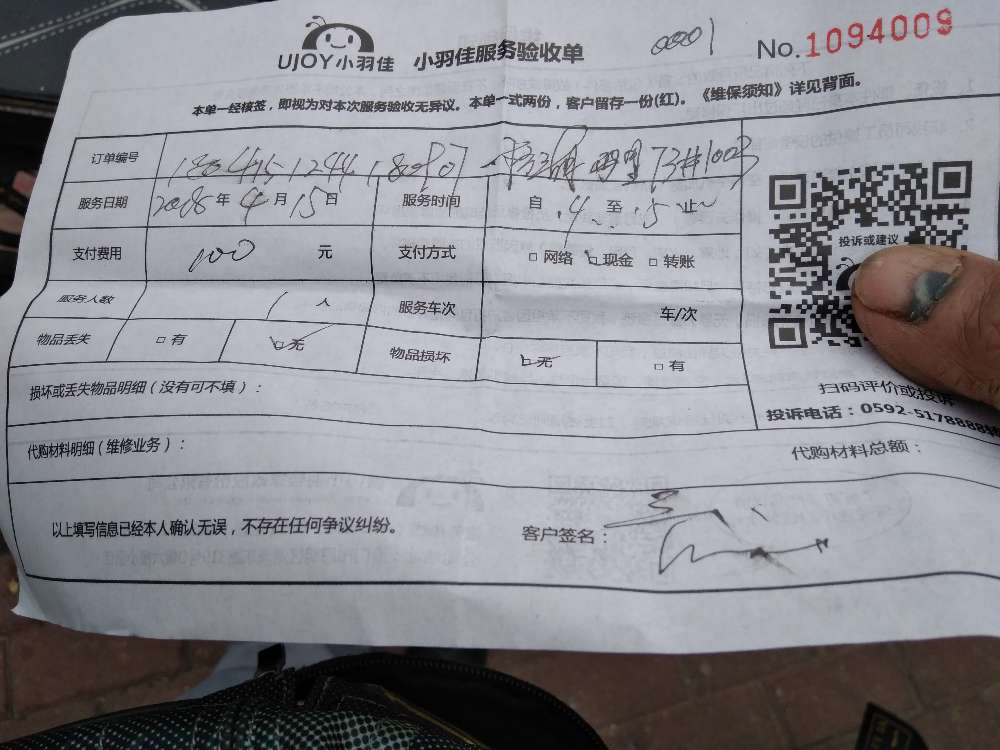 UJOY小羽佳 小羽佳服务验收单 0001 No.1094009
本单一经核签，即视为对本次服务验收无异议。本单一式两份，客户留存一份(红)。《维保须知》详见背面。
订单编号 73#1003
服务日期 2018年4月15日 服务时间 自.4至.5止
支付费用 100 元 支付方式 □网络 □现金 □转账
服务人数 1人 服务车次 车/次
物品丢失 □有 □无 物品损坏 □无 □有
损坏或丢失物品明细（没有可不填）：
代购材料明细（维修业务）： 代购材料总额：
以上填写信息已经本人确认无误，不存在任何争议纠纷。 客户签名：
投诉或建议
扫码评价或投诉
投诉电话：0592-5178888